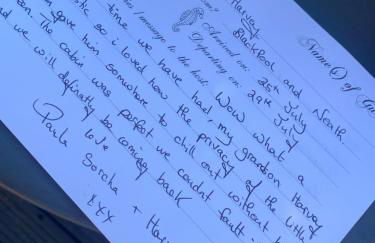 Name(s) of Gu
Harvey
Blackpool and Neath.
Arrived on: 25th July
Departing on: 29th July
s / message to the host: Wow what a
time we have had, my grandson Harvey
so i loved how the privacy of the little
gave him somewhere to chill out without
The cabin was perfect we couldnt fault
d we will definatly be coming back
love
Paula Sorcha + Ha
xxx